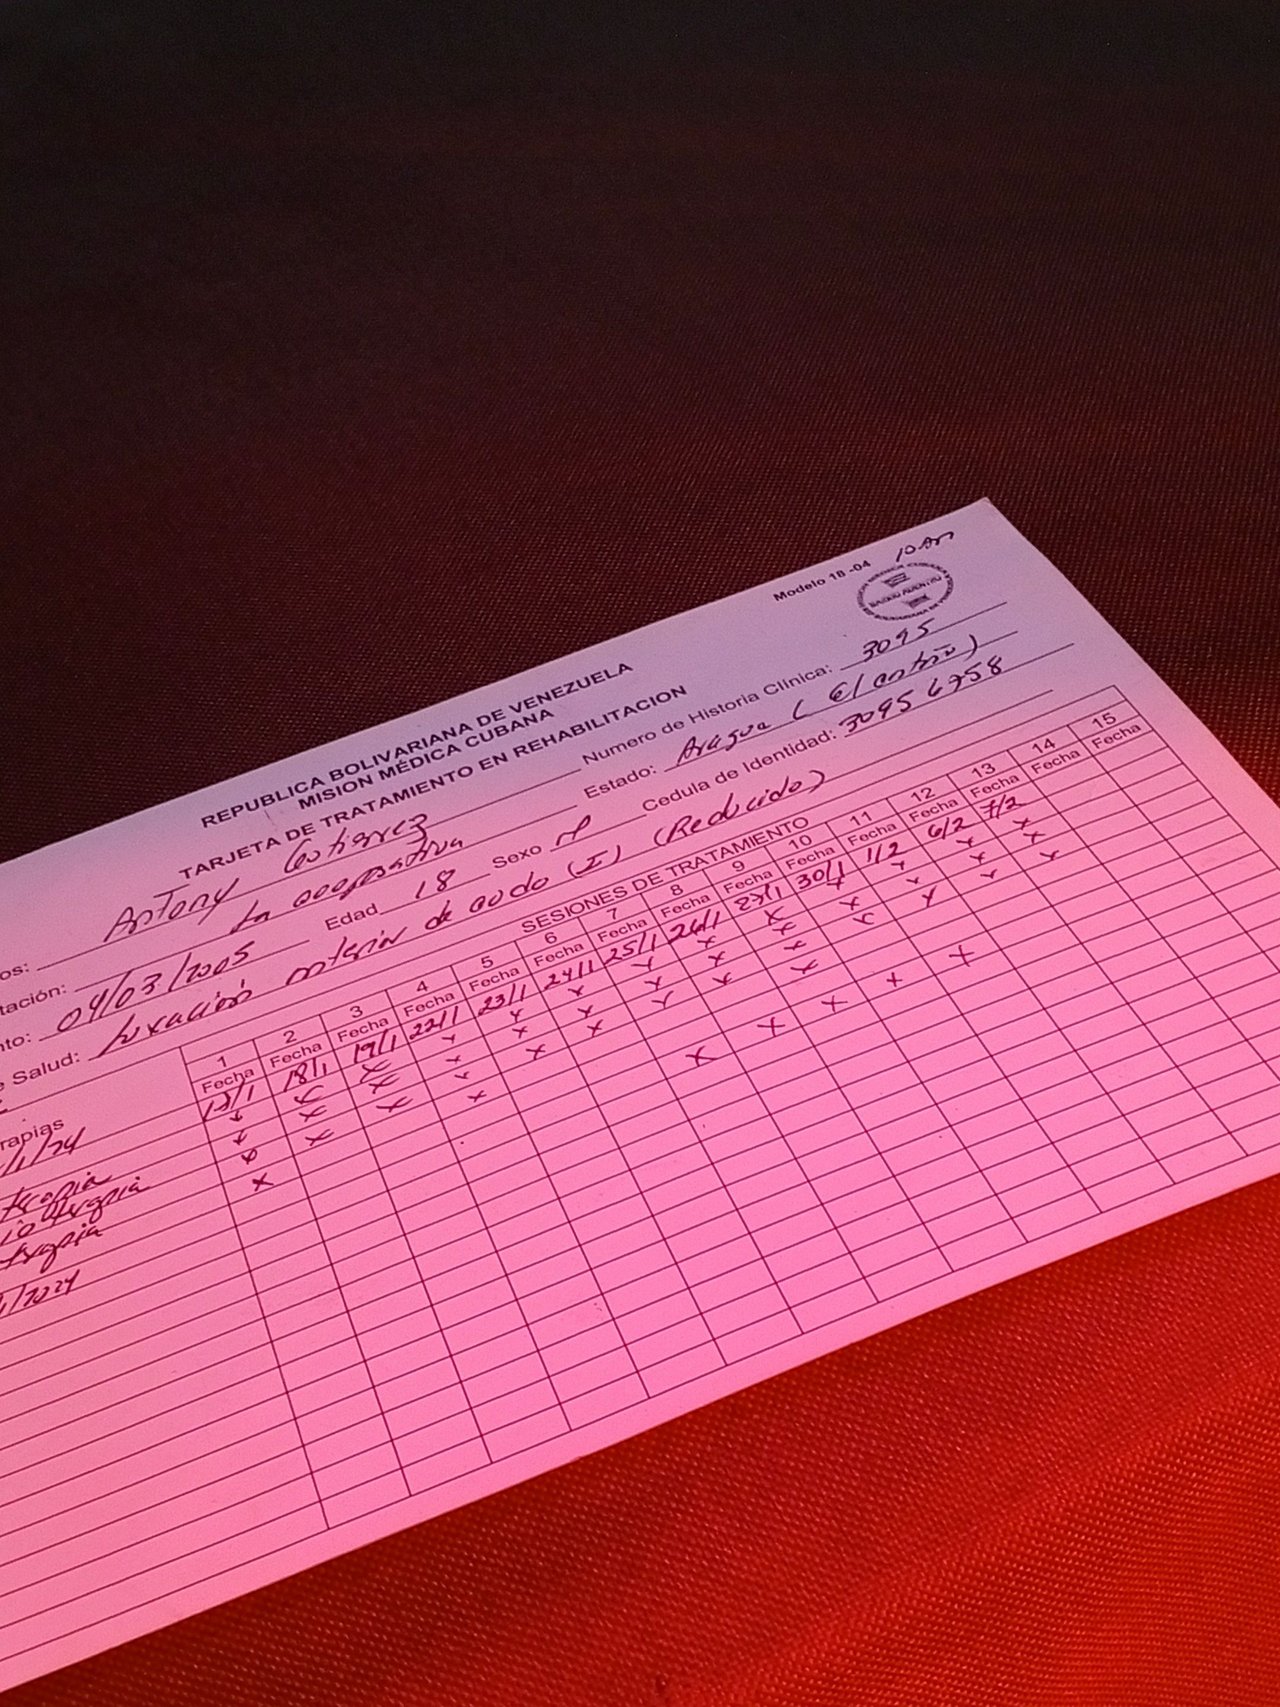 Modelo 18 -04 10 Am
REPUBLICA BOLIVARIANA DE VENEZUELA
MISION MÉDICA CUBANA
TARJETA DE TRATAMIENTO EN REHABILITACION
os: Antony Gutierrez Numero de Historia Clínica: 3095
tación: La cooperativa Estado: Aragua
nto: 04/03/2005 Edad 18 Sexo Cedula de Identidad: 30956758
e Salud: Luxación anterior de codo (I) (Reducido)
SESIONES DE TRATAMIENTO
rapias 1 2 3 4 5 6 7 8 9 10 11 12 13 14 15
Fecha Fecha Fecha Fecha Fecha Fecha Fecha Fecha Fecha Fecha Fecha Fecha Fecha Fecha
18/1 19/1 22/1 23/1 24/1 25/1 26/1 30/1 1/2 6/2 7/2
/1/24
terapia
terapia
/2024